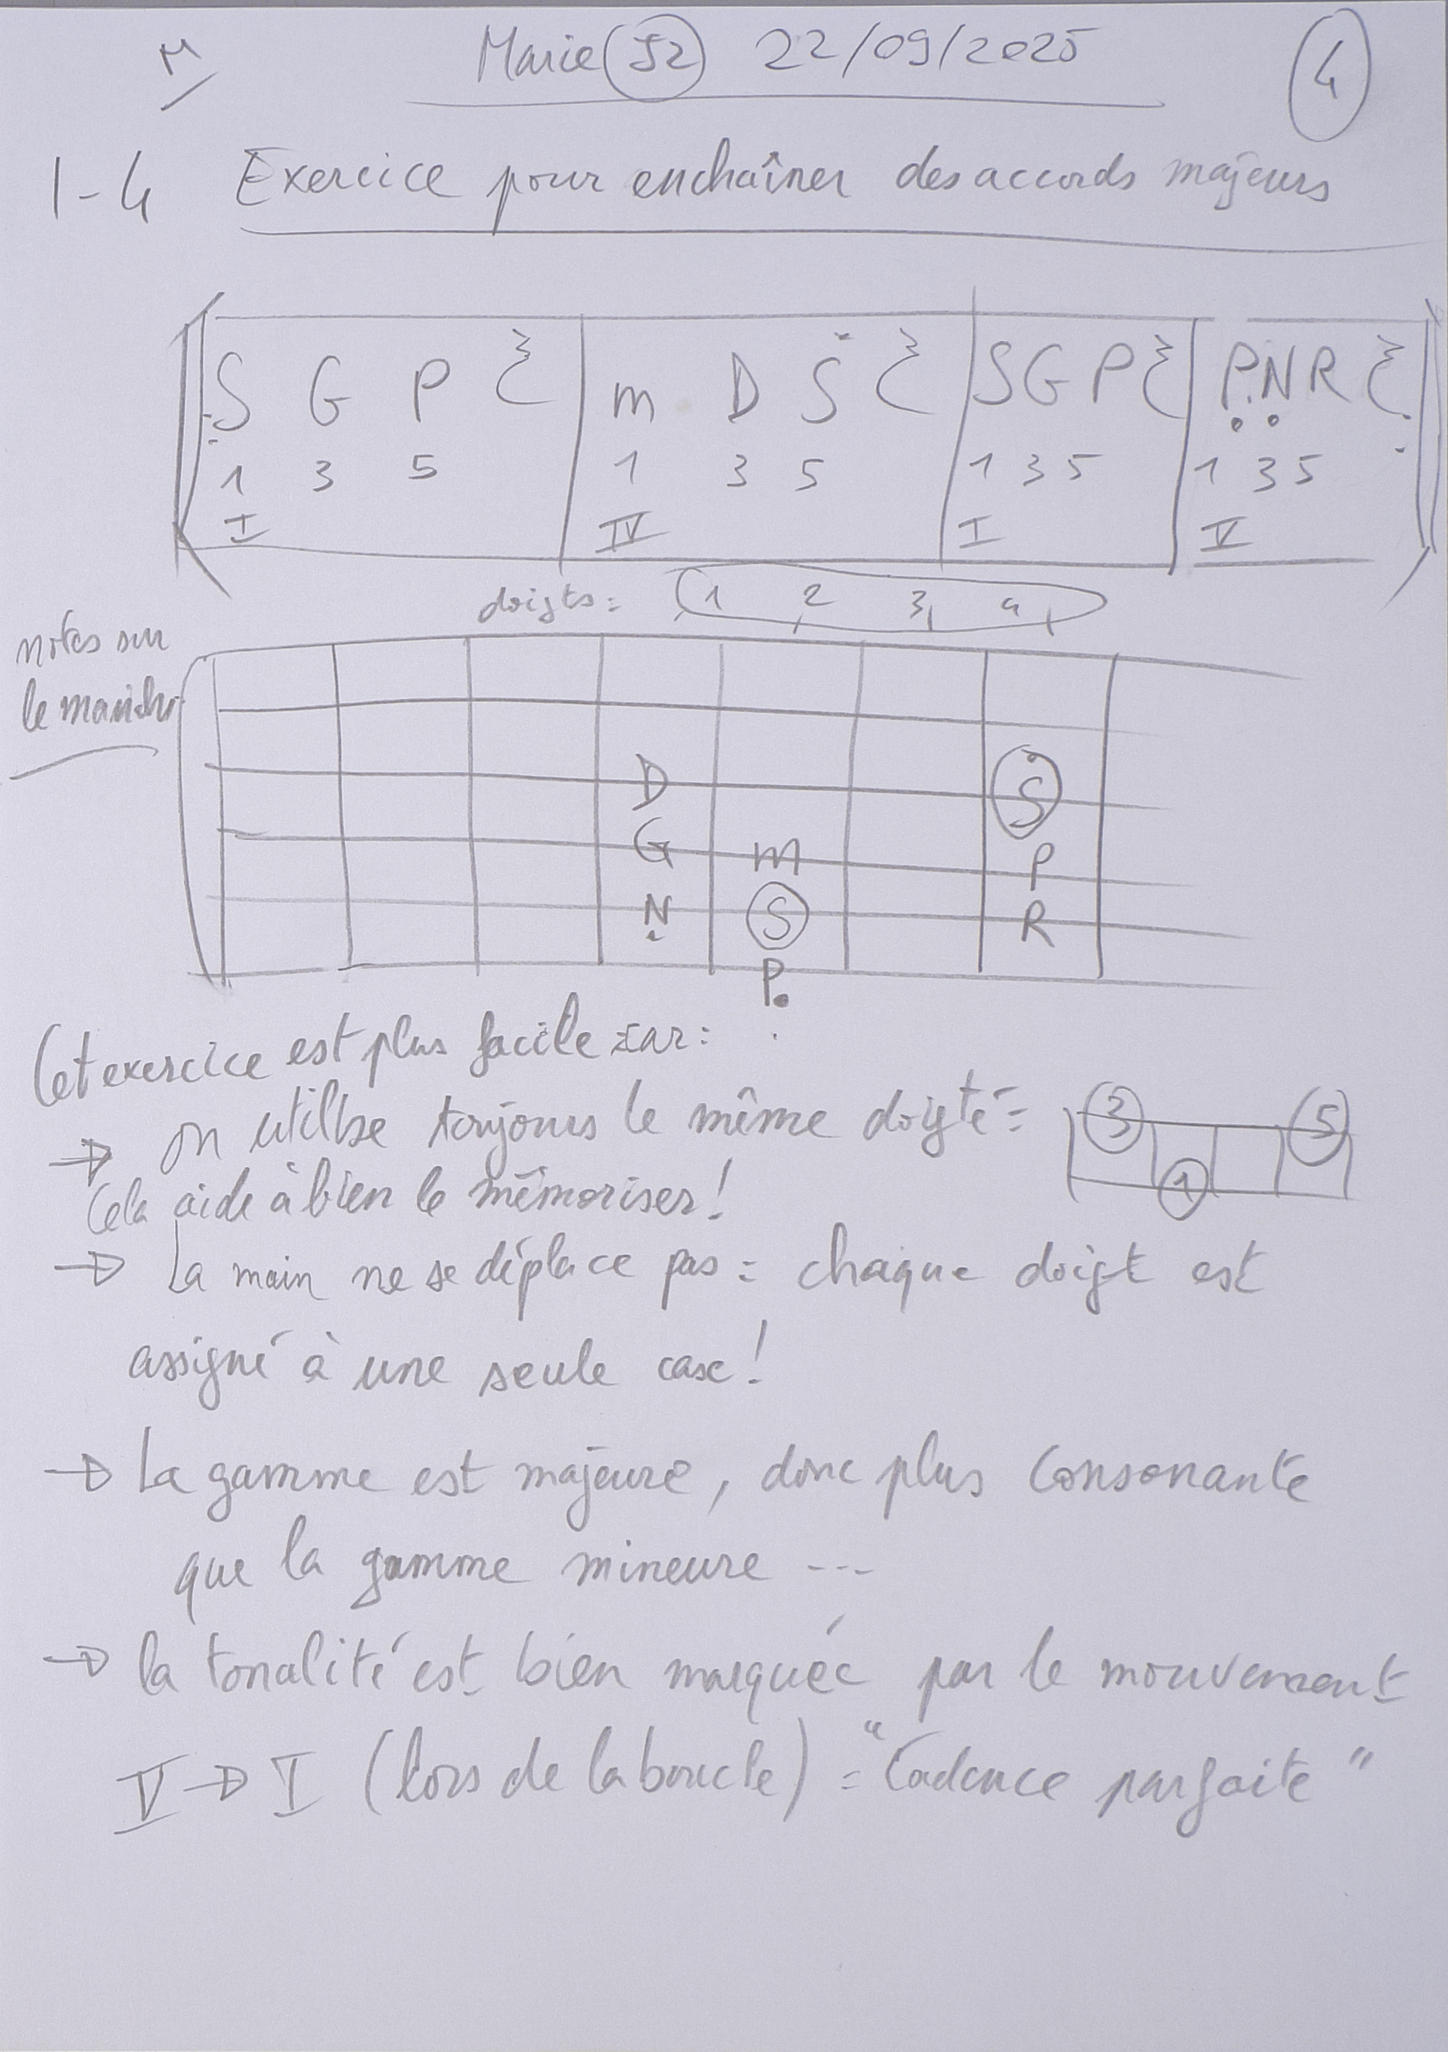 M
Marie (52) 22/09/2025
4
1-4 Exercice pour enchaîner des accords majeurs
S G P m D Ṡ S G P P. N. R
1 3 5 1 3 5 1 3 5 1 3 5
I IV I V
doigts: 1 2 3 4
notes sur
le manche
D Ṡ
G m P
N S R
P.
Cet exercice est plus facile car:
→ on utilise toujours le même doigté =
3 5
1
Cela aide à bien le mémoriser!
→ La main ne se déplace pas = chaque doigt est
assigné à une seule case!
→ La gamme est majeure, donc plus consonante
que la gamme mineure ---
→ la tonalité est bien marquée par le mouvement
V → I (lors de la boucle) = "Cadence parfaite"